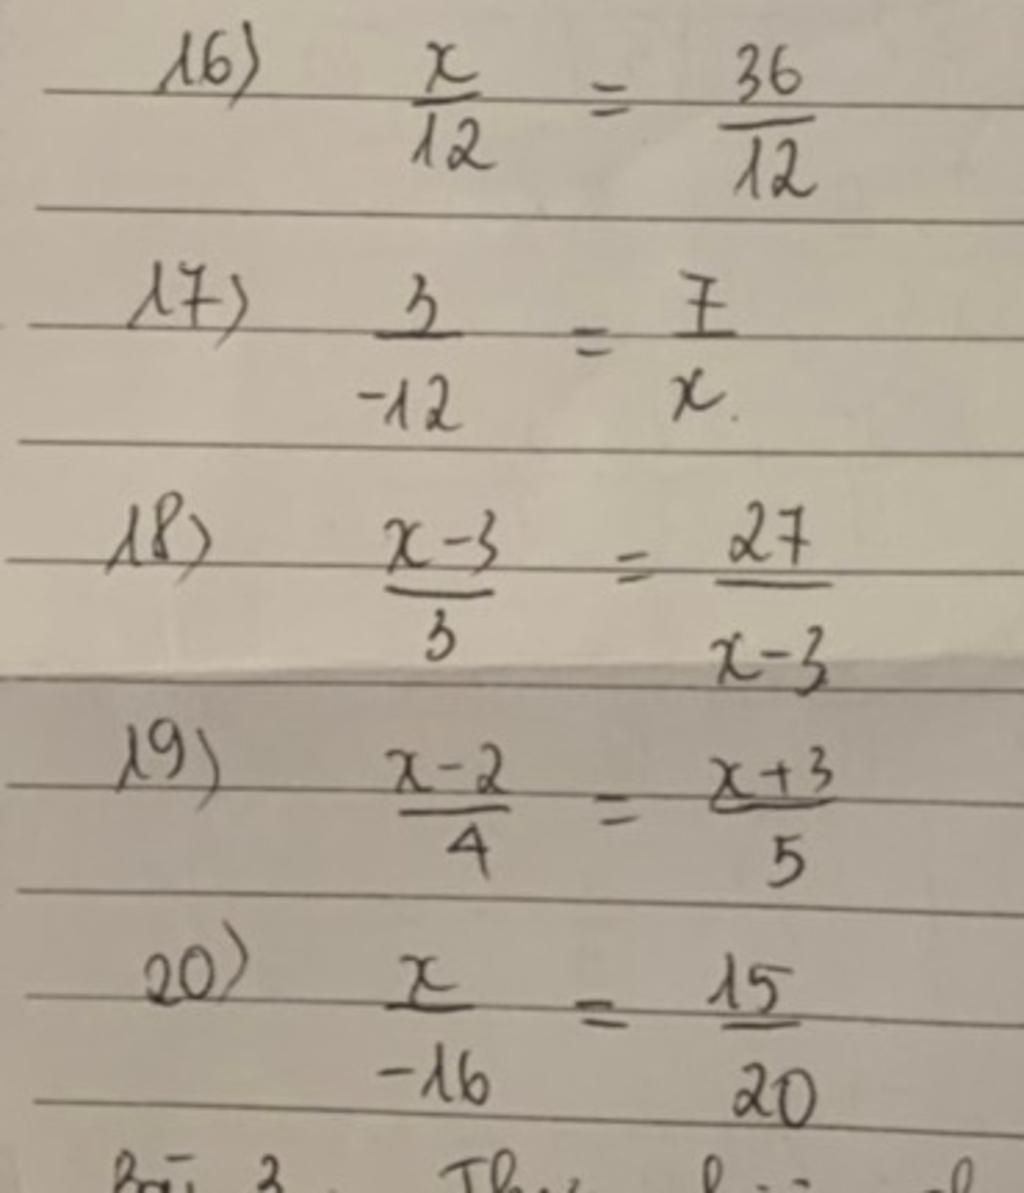 16) x/12 = 36/12
17) 3/-12 = 7/x
18) x-3/3 = 27/x-3
19) x-2/4 = x+3/5
20) x/-16 = 15/20